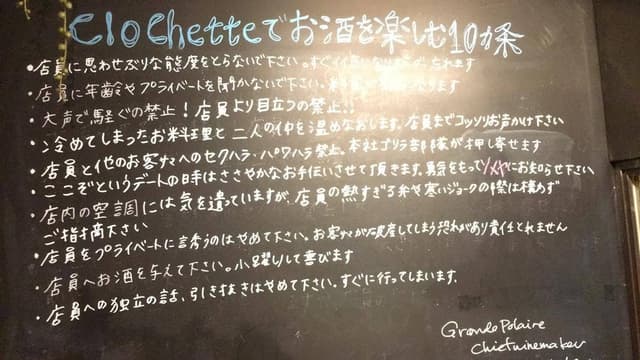 Clochetteでお酒を楽しむ10カ条
・店員に思わせぶりな態度をとらないで下さい。すぐイイ感じになり 忘れます
・店員に年齢やプライベートを聞かないで下さい。
・大声で騒ぐの禁止!店員より目立つの禁止!!
・冷めてしまったお料理と二人の仲を温めなおします。店員までコッソリお声かけ下さい
・店員と他のお客サマへのセクハラ・パワハラ禁止。本社ゴリラ部隊が押し寄せます
・ここぞというデートの日はささやかなお手伝いさせて頂きます。勇気をもって に お知らせ下さい
・店内の空調には気を遣っていますが、店員の熱すぎる 寒いジョークの際は構わず
ご指摘下さい
・店員をプライベートに誘うのはやめて下さい。お客サマが 度してしまう恐れがあり責任とれません
・店員へお酒を与えて下さい。小躍りして喜びます
・店員への独立の話、引き抜きはやめて下さい。すぐに行ってしまいます.
Grande Polaire
Chiefwinemaker